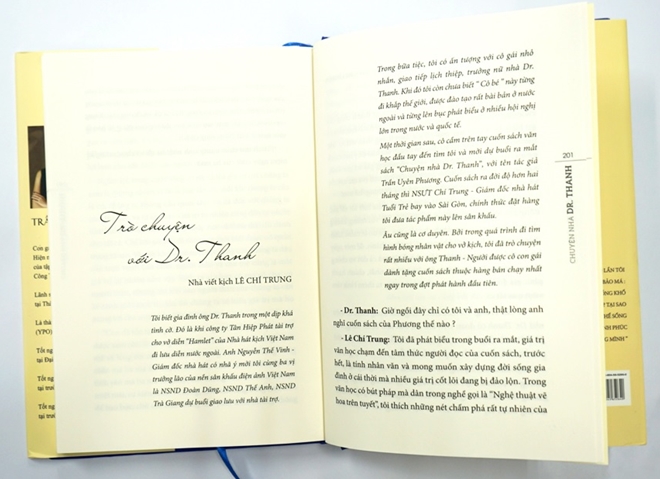 TRẦ
Con g
Hiện n
của tập
Công
Lãnh
tại Th
Là th
(YPO)
Tốt ng
tại Đại
Tốt ng
tại trườ
Tốt ng
tại trườ
Trò chuyện
với Dr. Thanh
Nhà viết kịch LÊ CHÍ TRUNG
Tôi biết gia đình ông Dr. Thanh trong một dịp khá
tình cờ. Đó là khi công ty Tân Hiệp Phát tài trợ
cho vở diễn "Hamlet" của Nhà hát kịch Việt Nam
đi lưu diễn nước ngoài. Anh Nguyễn Thế Vinh -
Giám đốc nhà hát có nhã ý mời tôi cùng ba vị
trưởng lão của nền sân khấu điện ảnh Việt Nam
là NSND Doãn Dũng, NSND Thế Anh, NSND
Trà Giang dự buổi giao lưu với nhà tài trợ.
Trong bữa tiệc, tôi có ấn tượng với cô gái nhỏ
nhắn, giao tiếp lịch thiệp, trưởng nữ nhà Dr.
Thanh. Khi đó tôi còn chưa biết " Cô bé " này từng
đi khắp thế giới, được đào tạo rất bài bản ở nước
ngoài và từng lên bục phát biểu ở nhiều hội nghị
lớn trong nước và quốc tế.
Một thời gian sau, cô cầm trên tay cuốn sách văn
học đầu tay đến tìm tôi và mời dự buổi ra mắt
sách "Chuyện nhà Dr. Thanh", với tên tác giả
Trần Uyên Phương. Cuốn sách ra đời độ hơn hai
tháng thì NSUT Chí Trung - Giám đốc nhà hát
Tuổi Trẻ bay vào Sài Gòn, chính thức đặt hàng
tôi đưa tác phẩm này lên sân khấu.
Âu cũng là cơ duyên. Bởi trong quá trình đi tìm
hình bóng nhân vật cho vở kịch, tôi đã trò chuyện
rất nhiều với ông Thanh - Người được cô con gái
dành tặng cuốn sách thuộc hàng bán chạy nhất
ngay trong đợt phát hành đầu tiên.
- Dr. Thanh: Giờ ngồi đây chỉ có tôi và anh, thật lòng anh
nghĩ cuốn sách của Phương thế nào ?
- Lê Chí Trung: Tôi đã phát biểu trong buổi ra mắt, giá trị
văn học chạm đến tâm thức người đọc của cuốn sách, trước
hết, là tính nhân văn và mong muốn xây dựng đời sống gia
đình ở cái thời mà nhiều giá trị cốt lõi đang bị đảo lộn. Trong
văn học có bút pháp mà dân trong nghề gọi là "Nghệ thuật vẽ
hoa trên tuyết", tôi thích những nét chấm phá rất tự nhiên của
201
CHUYỆN NHÀ DR. THANH
LẦN TÔI
BÁO MÀ :
ỐNG KHỔ
TẠI SAO
THỂ SỐNG
NH PHÚC
NG MINH "